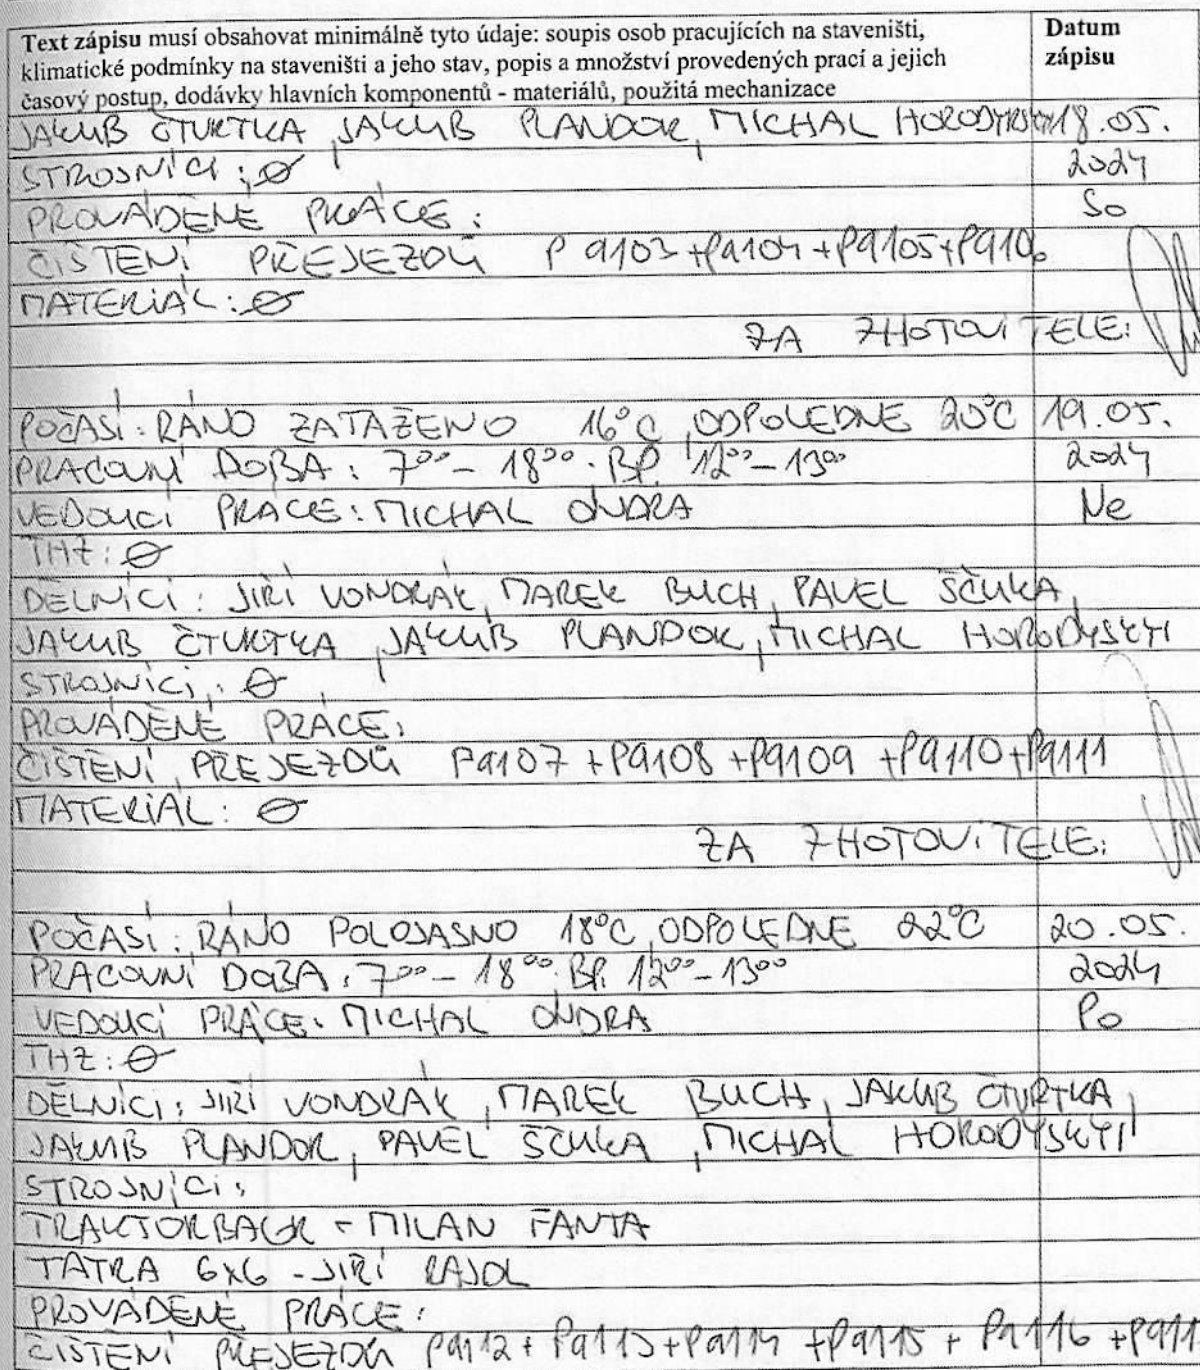 Text zápisu musí obsahovat minimálně tyto údaje: soupis osob pracujících na staveništi, Datum
klimatické podmínky na staveništi a jeho stav, popis a množství provedených prací a jejich zápisu
časový postup, dodávky hlavních komponentů - materiálů, použitá mechanizace
JAKUB ČTVRTKA, JAKUB PLANDOR, MICHAL HORODYSKYI 18.05.
STROJNÍCI: Ø 2024
PROVÁDĚNÉ PRÁCE: So
ČIŠTĚNÍ PŘEJEZDŮ P9103+P9104+P9105+P9106
MATERIÁL: Ø
ZA ZHOTOVITELE:
POČASÍ: RÁNO ZATAŽENO 16°C, ODPOLEDNE 20°C 19.05.
PRACOVNÍ DOBA: 7⁰⁰ - 18⁰⁰. BP. 12⁰⁰ - 13⁰⁰ 2024
VEDOUCÍ PRÁCE: MICHAL ONDRA Ne
THZ: Ø
DĚLNÍCI: JIŘÍ VONDRÁK, MAREK BUCH, PAVEL ŠČUKA,
JAKUB ČTVRTKA, JAKUB PLANDOR, MICHAL HORODYSKYI
STROJNÍCI: Ø
PROVÁDĚNÉ PRÁCE:
ČIŠTĚNÍ PŘEJEZDŮ P9107 + P9108 + P9109 + P9110 + P9111
MATERIÁL: Ø
ZA ZHOTOVITELE:
POČASÍ: RÁNO POLOJASNO 18°C, ODPOLEDNE 22°C 20.05.
PRACOVNÍ DOBA: 7⁰⁰ - 18⁰⁰. BP. 12⁰⁰ - 13⁰⁰ 2024
VEDOUCÍ PRÁCE: MICHAL ONDRA Po
THZ: Ø
DĚLNÍCI: JIŘÍ VONDRÁK, MAREK BUCH, JAKUB ČTVRTKA,
JAKUB PLANDOR, PAVEL ŠČUKA, MICHAL HORODYSKYI
STROJNÍCI:
TRAKTORBAGR - MILAN FANTA
TATRA 6x6 - JIŘÍ RAJDL
PROVÁDĚNÉ PRÁCE:
ČIŠTĚNÍ PŘEJEZDŮ P9112 + P9113 + P9114 + P9115 + P9116 + P911